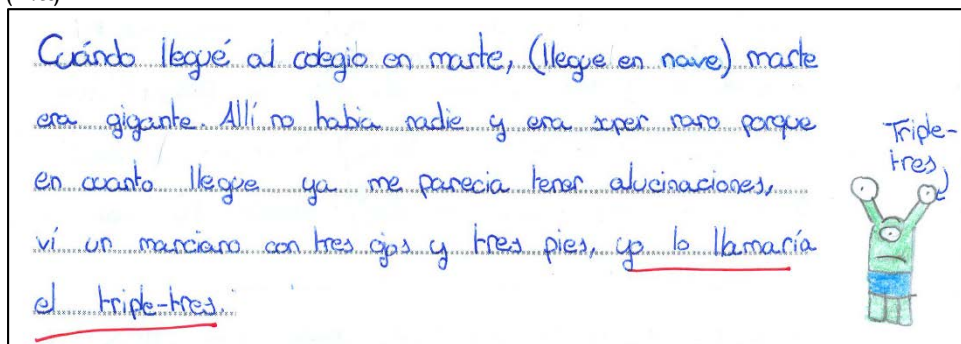 Cuándo llegué al colegio en marte, (llegue en nave) marte
era gigante. Allí no habia nadie y era super raro porque
en cuanto llegue ya me parecia tener alucinaciones,
ví un marciano con tres ojos y tres pies, yo lo llamaría
el triple-tres.
Triple-
tres